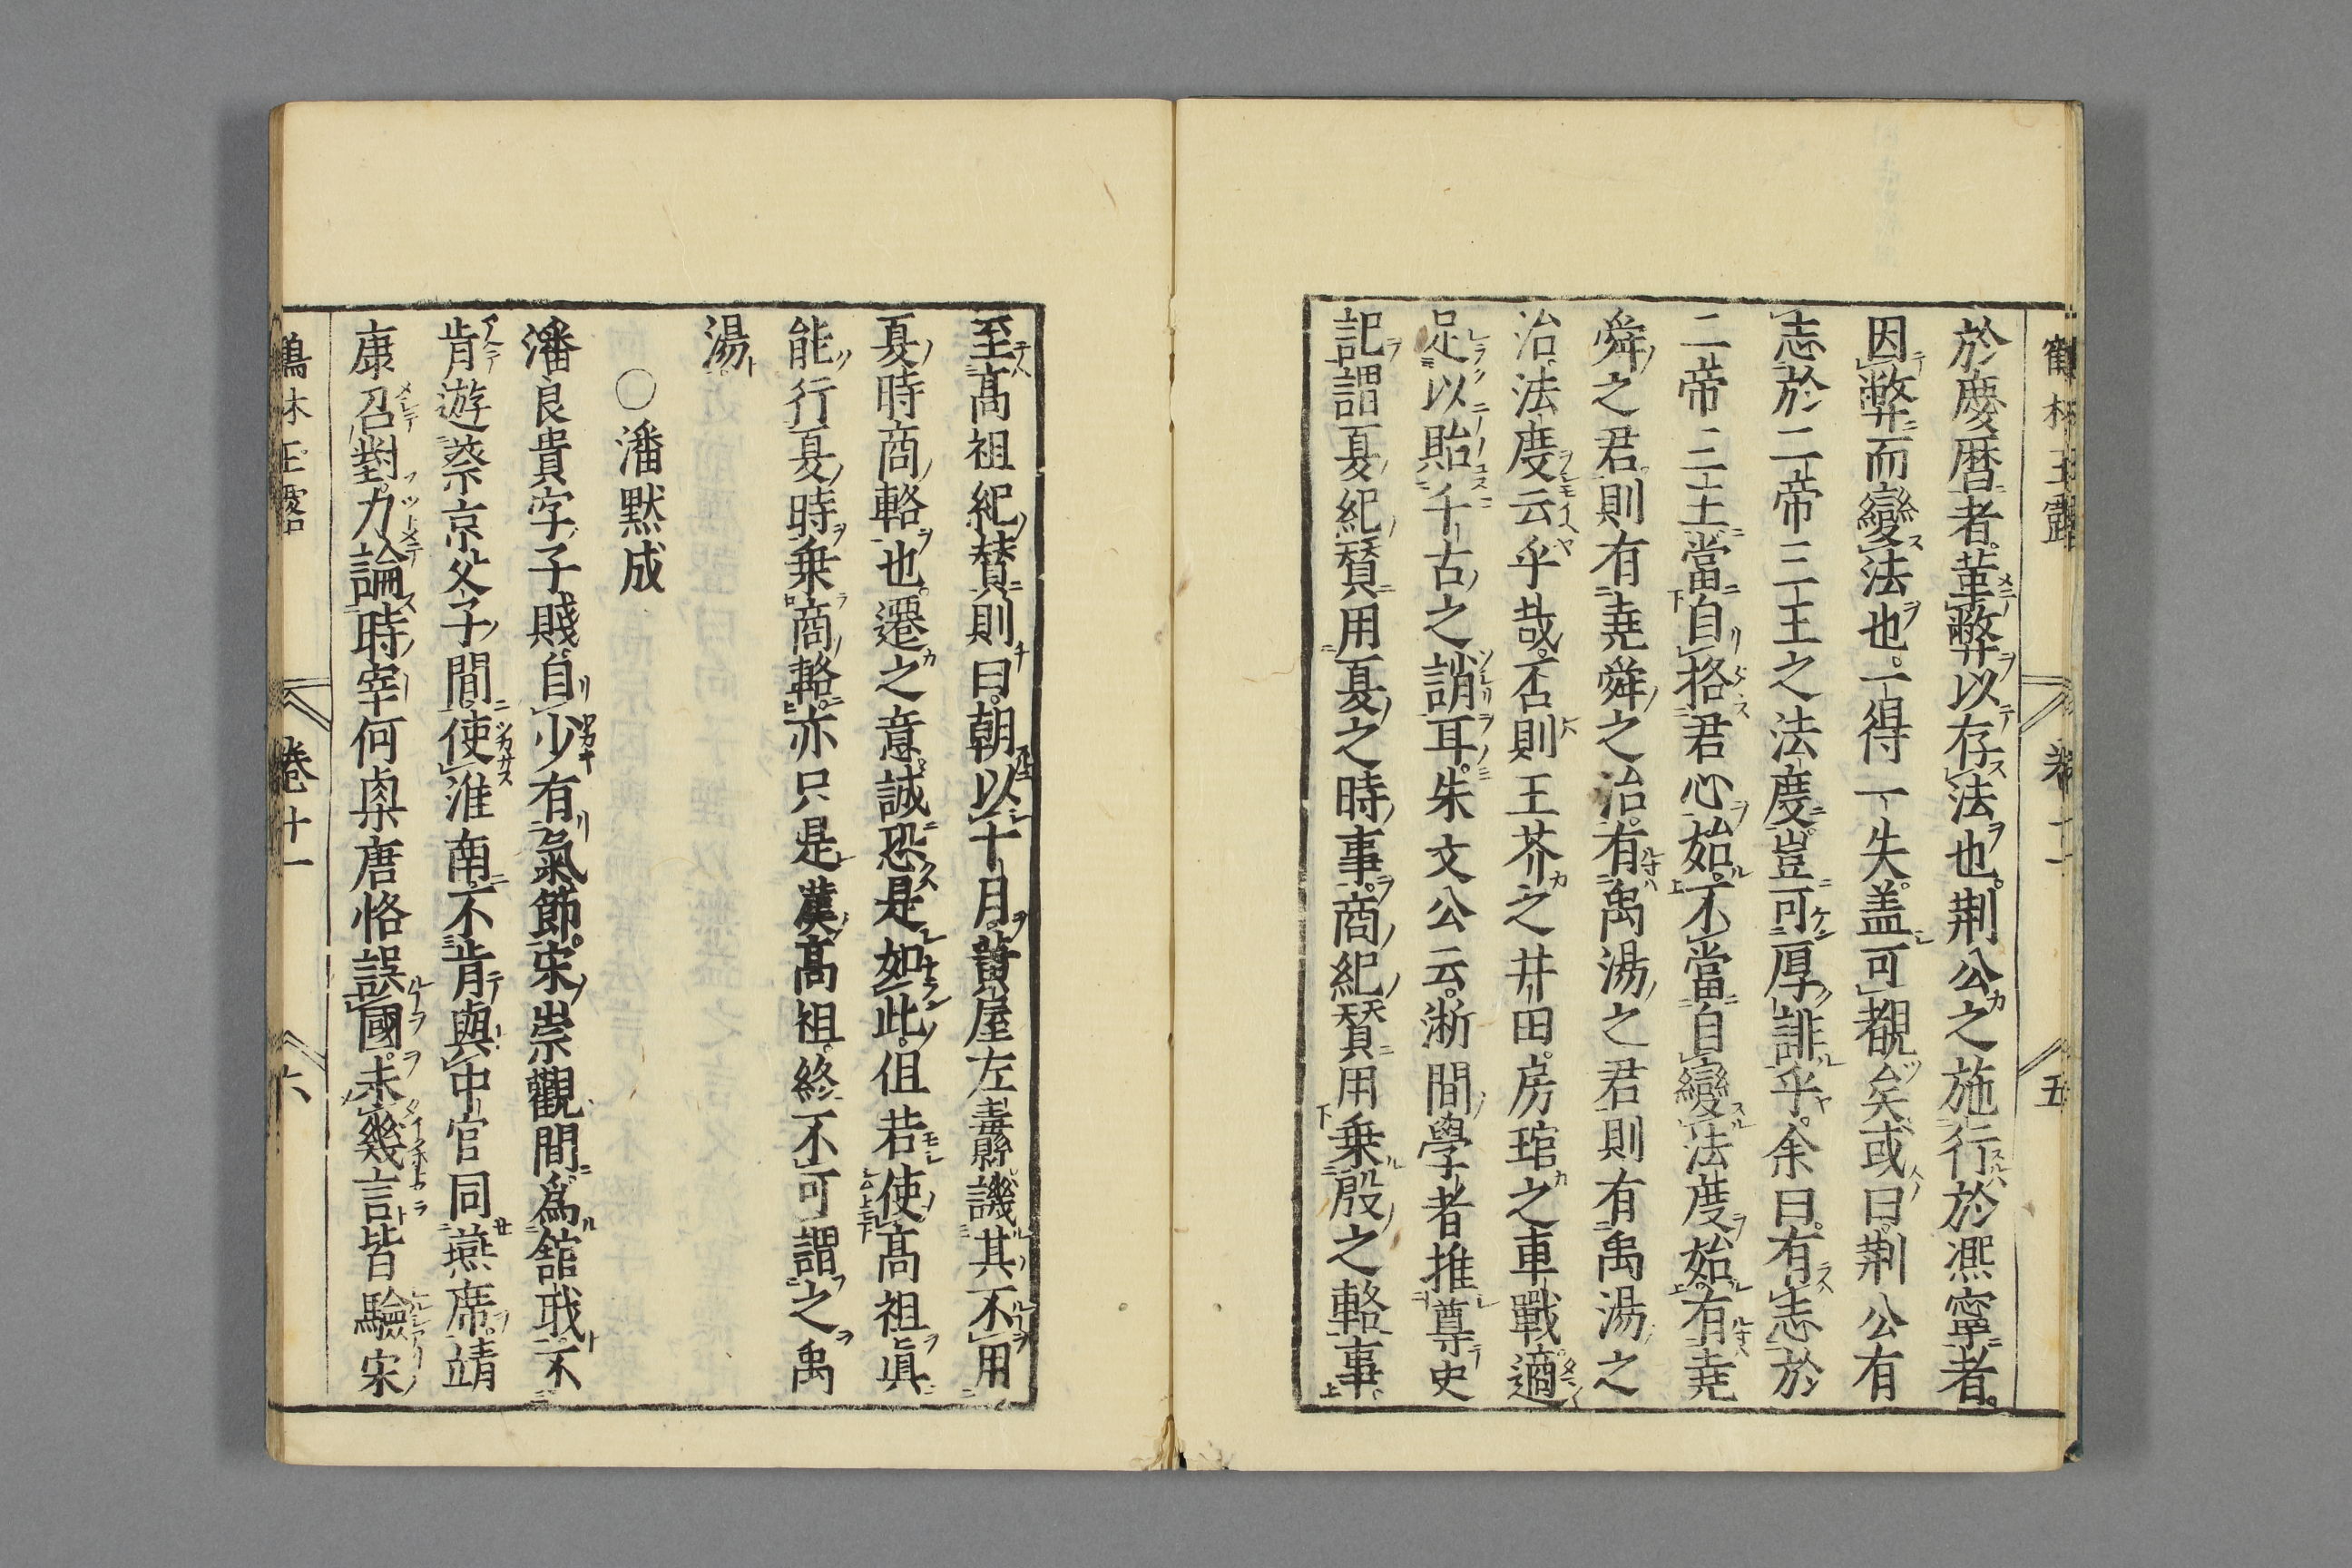 鶴林玉露　卷十一　五
於慶曆者革弊以存法也荆公之施行於凞寧者
因弊而變法也一得一失盖可覩矣或曰荆公有
志於二帝三王之法度豈可厚誹乎余曰有志於
二帝三王當自格君心始不當自變法度始有堯
舜之君則有堯舜之治有禹湯之君則有禹湯之
治法度云乎哉否則王莽之井田房琯之車戰適
足以貽千古之誚耳朱文公云浙間學者推尊史
記謂夏紀賛用夏之時事商紀賛用乗殷之輅事
至高祖紀賛則曰朝以十月黃屋左纛譏其不用
夏時商輅也遷之意誠恐是如此但若使高祖眞
能行夏時乗商輅亦只是漢高祖終不可謂之禹
湯
○潘默成
潘良貴字子賤自少有氣節宋崇觀間爲舘職不
肯遊蔡京父子間使淮南不肯與中官同燕席靖
康召對力論時宰何㮚唐恪誤國未幾言皆驗宋
鶴林玉露　卷十一　六